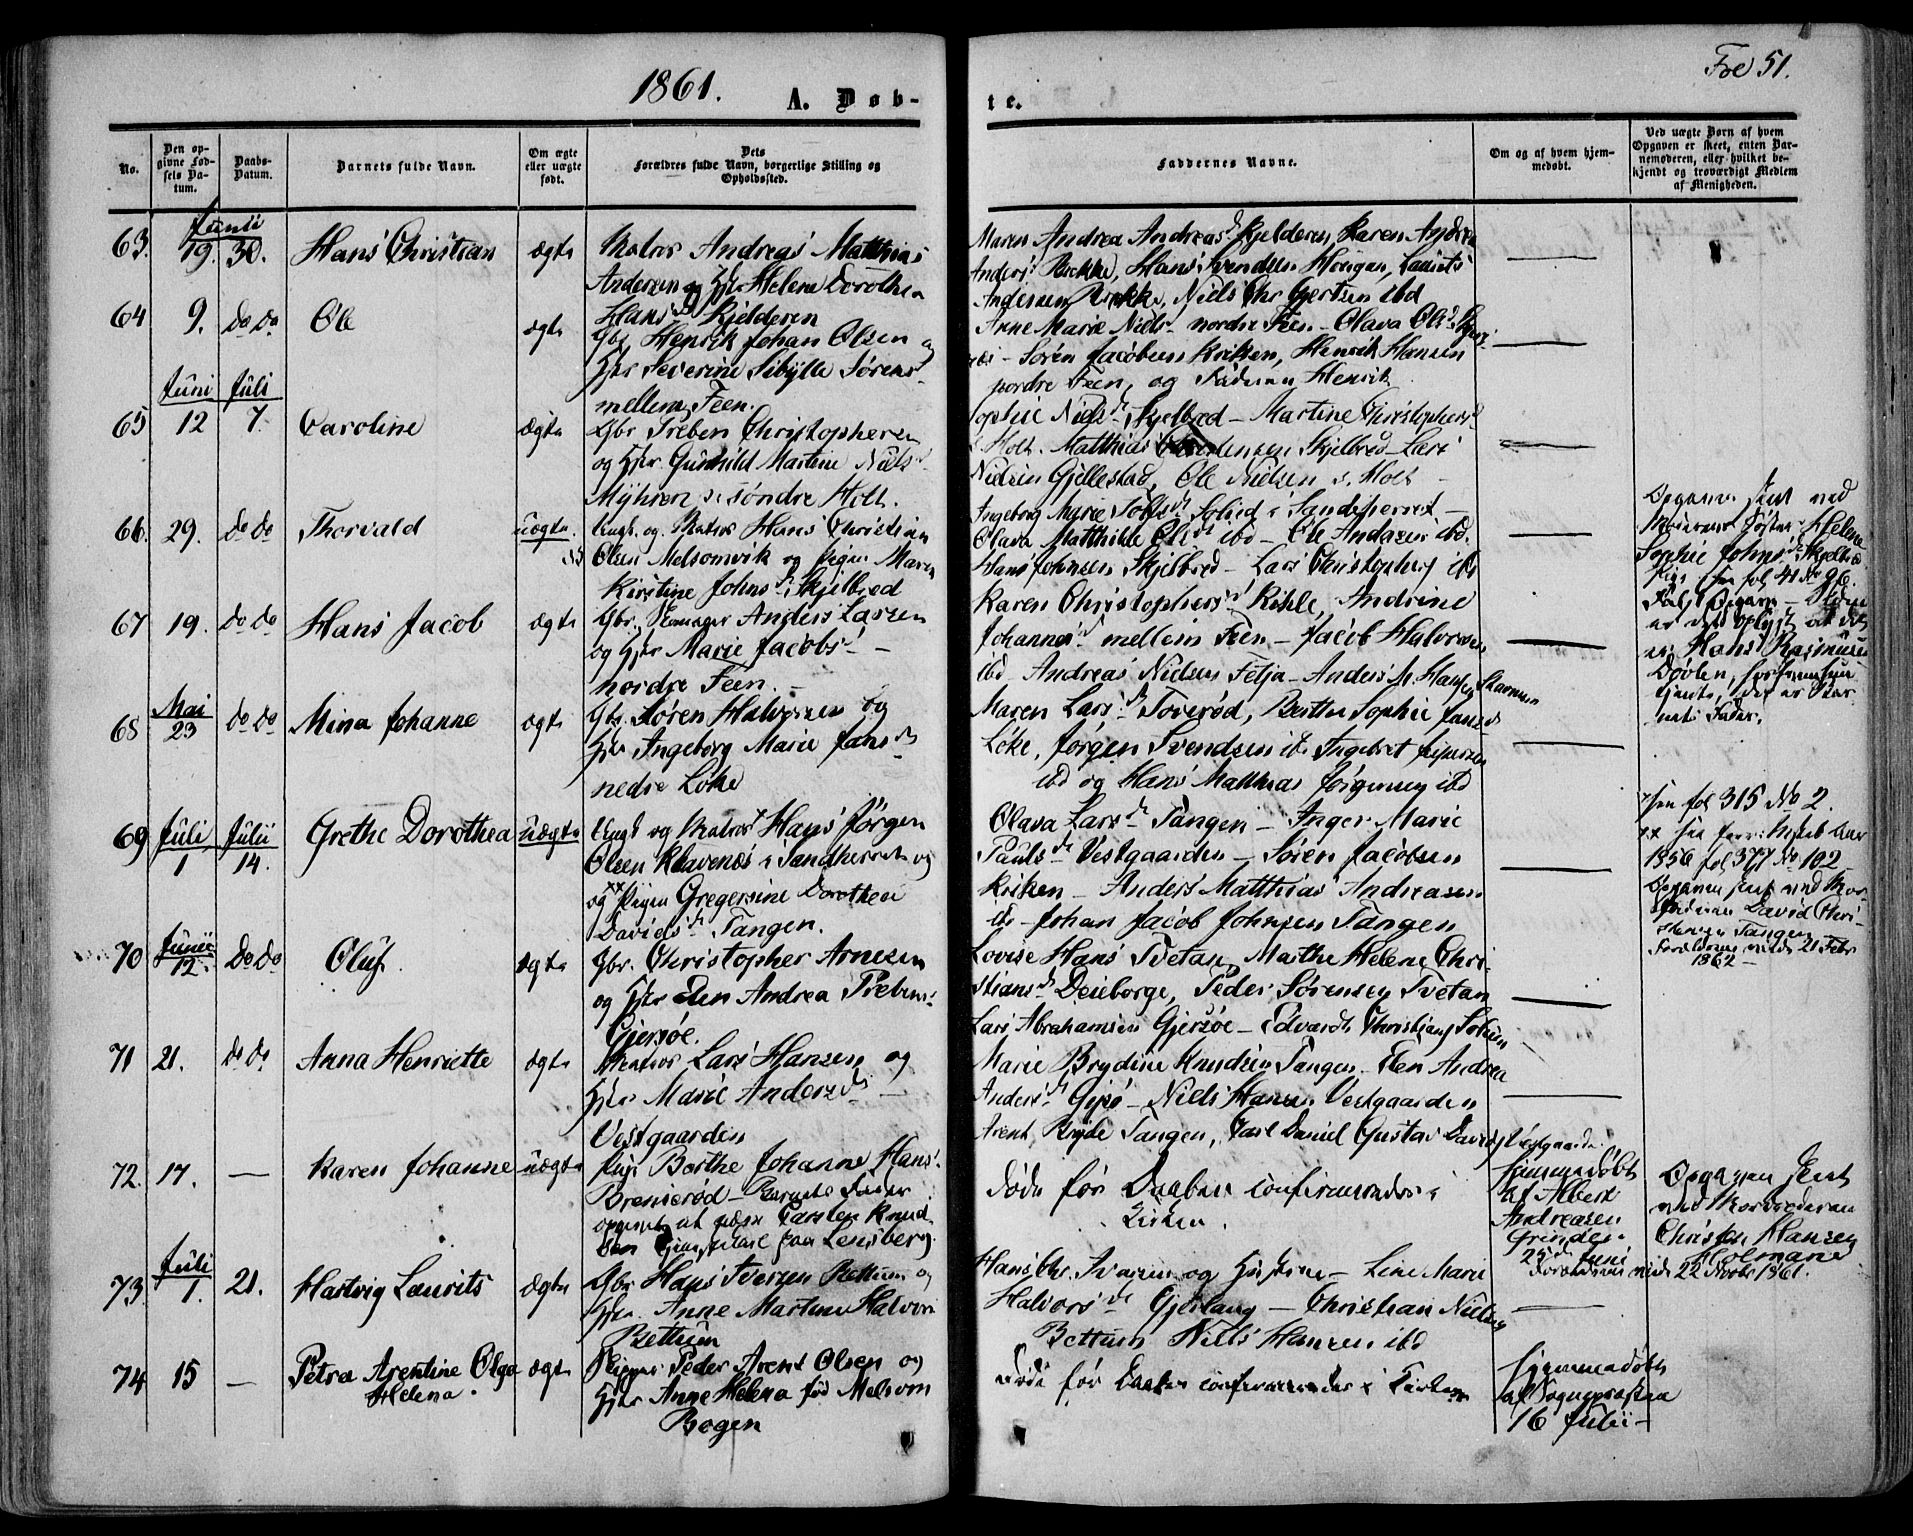 1861.
A. Døb-
te.
Foe 51.
No.
Den op-
givne Fød-
sels Da-
tum.
Daabs-
Datum.
Barnets fulde Navn.
Om ægte
eller uægte
født.
Dets
Forældres fulde Navn, borgerlige Stilling og
Opholdssted.
Faddernes Navne.
Om og af hvem hjem-
medøbt.
Ved uægte Børn af hvem
Opgaven er skeet, enten Bar-
nemoderen, eller hvilket be-
kjendt og troværdigt Medlem
af Menigheden.
Junii
63. 19. 30. Hans Christian ægte Matros Andreas Matthias
Andersen og Hstr Helene Dorothea
Hans Kjelderen
Maren Andrea Andreasd Kjelderen, Karen Andrea
Anders Bekke, Hans Svendsen Hougan, Laurits
Andersen Bekke, Niels Chr Gjertsen ibd
64 9. Do Do Ole ægte Gbr Henrik Johan Olsen og
Hstr Severine Sibylle Sørens
mellem Feen.
Anne Marie Niels nordre Feen - Olava Olsd
Søren Jacobsen Kriken, Henrik Hansen
nordre Feen, og Faderen Henrik
Juni Juli
65 12 7. Caroline ægte Gbr Preben Christophersen
og Hstr Gunhild Martine Niels
Myhren s. søndre Holt.
Sophie Nielsd Skjelbred - Martine Christophersd
s. Holt. Matthias Christensen Skjelbred - Lars
Nielsen Gjellestad, Ole Nielsen s. Holt
66. 29. Do Do Thorvald uægte Ungk. og Matros Hans Christian
Olsen Melsomvik og Pigen Maren
Kirstine Johnsd Skjelbred
Ingeborg Marie Solid i Sandeherred -
Olava Matthilde Olsd ibd - Ole Andersen ibd.
Hans Johnsen Skjelbred - Lars Christophers ibd
Opgaven skeet ved
Moderens Søster Helene
Sophie Johnsd Skjelbred
see fol 41 No 96.
er det oplyst at det
er Hans Rasmussen
Døvlen,
der er Bar
nets Fader.
67 19. Do Do Hans Jacob ægte Gbr. Anders Larsen
og Hstr Marie Jacobs -
nordre Feen.
Karen Christophersd Kihle, Andrine
Johannesd mellem Feen - Jacob Halvorsen
ibd - Andreas Nielsen Felja - Anders M. Hansen
Mai
68 23 Do Do Mina Johanne ægte Gbr. Søren Halvorsen og
Hstr Ingeborg Marie Jansd
nedre Løke
Maren Larsd Toverød, Berthe Sophie Jansd
Løke, Jørgen Svendsen ibd Ingebret Jespersen
ibd og Hans Matthias Jørgensen ibd
Juli Julii
69 1 14. Grethe Dorothea uægte Ungk og Matros Hans Jørgen
Olsen Klavenæs i Sandherred og
og Pigen Gregersine Dorothea
Davidsd Tangen.
Olava Larsd Tangen - Inger Marie
Paulsd Vestgaarden - Søren Jacobsen
Kriken - Anders Matthias Andreasen
ibd - Johan Jacob Johnsen Tangen
see fol 315 No 2.
1856 fol 377 No 102
Opgaven skeet ved Mor-
faderen David Chri-
stensen Tangen
Forældrene viede 21 Febr
1862 -
Junii
70 12. Do Do Oluf. ægte Gbr. Christopher Arnesen
og Hstr Elen Andrea Prebens
Gjersøe.
Lovise Hans Tvetan, Marthe Helene Chri-
stiansd Deieborge, Peder Sørensen Tvetan
Lars Abrahamsen Gjersøe - Edvardt Christians
71 21. Do Do Anna Henriette ægte Matros Lars Hansen og
Hstr Marie Andersd -
Vestgaarden
Marie Brydine Knudsen Tangen - Elen Andrea
Andersd Gjersø - Niels Hansen Vestgaarden
Arent Bryde Tangen, Carl Daniel Gustav Davids Vestgaarden
72. 17. — Karen Johanne uægte Pige Berthe Johanne Hans
Bremerød - Barnets Fader
opgivet at være Carsten Knud
sen
Døde før Daaben confirmeredes i
Kirken.
Hjemmedøbt
af Albert
Andreasen
Grinden
25de Juni
Opgaven skeet
ved Morfaderen
Christen Hansen
Holmane
Forældrene viede 22 Novbr 1861.
Juli
73. 1. 21. Hartvig Laurits ægte Gbr Hans Iversen Bettum og
Hstr Anne Martine Halvors
Bettum
Hans Chr. Iversen og Hustrue - Line Marie
Halvorsd Gjerlaug - Christian Nielsen
Bettum Niels Hansen ibd
74 15 — Petra Arentine Olga
Helena. ægte Skipper Peder Arent Olsen og
Hstr Anne Helena fød Melsom
Bogen
Døde før Daaben confirmeredes i Kirken
Hjemmedøbt
af Sognepræsten
16 Julii -